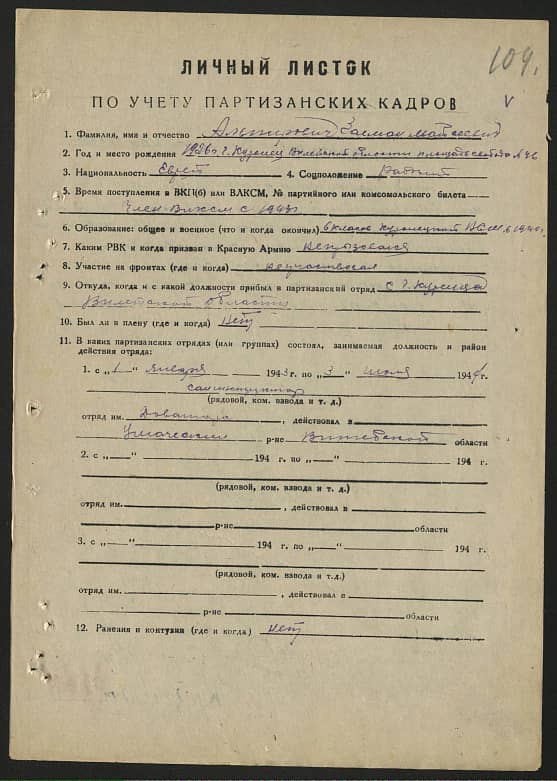 104.
ЛИЧНЫЙ ЛИСТОК
ПО УЧЕТУ ПАРТИЗАНСКИХ КАДРОВ V
1. Фамилия, имя и отчество Альперович Залман
2. Год и место рождения 1926 г. г. Куренец Вилейской области площадь свободы № 46
3. Национальность Еврей 4. Соцположение Рабочий
5. Время поступления в ВКП(б) или ВЛКСМ, № партийного или комсомольского билета
Член ВЛКСМ с 1943 г.
6. Образование: общее и военное (что и когда окончил) 6 класов Куренецкой в 1940 г.
7. Каким РВК и когда призван в Красную Армию Непризовался
8. Участие на фронтах (где и когда) неучаствовал
9. Откуда, когда и с какой должности прибыл в партизанский отряд с г. Куренца
Вилейской области
10. Был ли в плену (где и когда) Нет
11. В каких партизанских отрядах (или группах) состоял, занимаемая должность и район
действия отряда:
1. с „1“ января 1943 г. по „3“ июля 1944 г.
санинструктор
(рядовой, ком. взвода и т. д.)
отряд им. Доватора, действовал в
Ушачском р-не Витебской области
2. с „—“ 194 г. по „—“ 194 г.
(рядовой, ком. взвода и т. д.)
отряд им. , действовал в
р-не области
3. с „—“ 194 г. по „—“ 194 г.
(рядовой, ком. взвода и т. д.)
отряд им. , действовал в
р-не области
12. Ранения и контузии (где и когда) нет